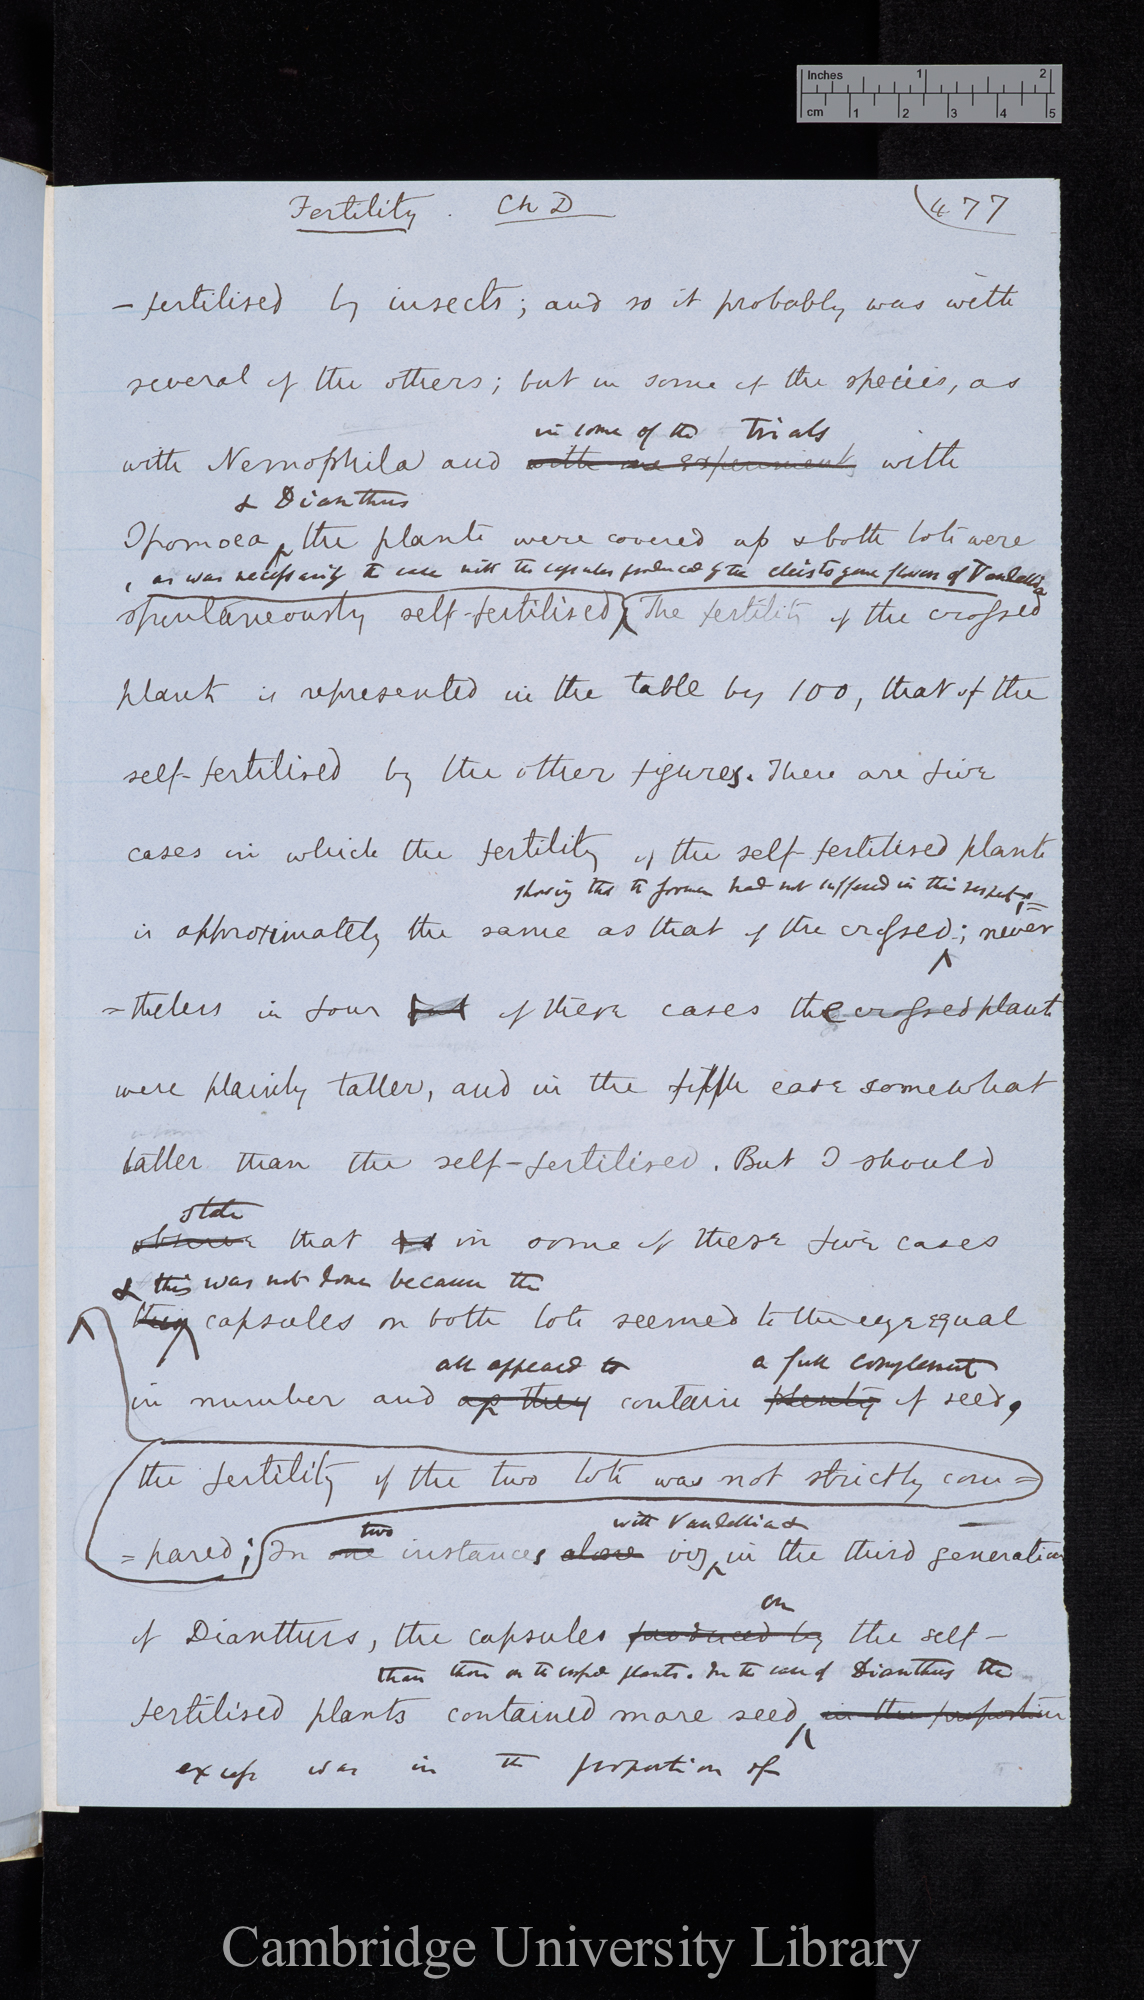 Inches 1 2
cm 1 2 3 4 5
Fertility. Ch D 477
-fertilised by insects; and so it probably was with
several of the others; but in some of the species, as
in some of the trials
with Nemophila and with the experiments with
& Dianthus
Ipomoea, the plants were covered up & both lots were
, as was necessarily the case with the capsules produced by the cleistogene flowers of Vandellia
spontaneously self-fertilised. The fertility of the crossed
plants is represented in the table by 100, that of the
self-fertilised by the other figures. There are five
cases in which the fertility of the self-fertilised plants
showing that the former had not suffered in this respect;
is approximately the same as that of the crossed; never
=theless in four of these cases the crossed plants
were plainly taller, and in the fifth case somewhat
taller than the self-fertilised. But I should
state
observe that as in some of these five cases
& this was not done because the
they capsules on both lots seemed to the eye equal
all appeared to a full complement
in number and as they contain plenty of seed,
the fertility of the two lots was not strictly com=
two with Vandellia &
=pared; In one instances alone viz in the third generation
on
of Dianthus, the capsules produced by the self-
than those on the crossed plants. In the case of Dianthus the
fertilised plants contained more seed in the proportion
excess was in the proportion of
Cambridge University Library